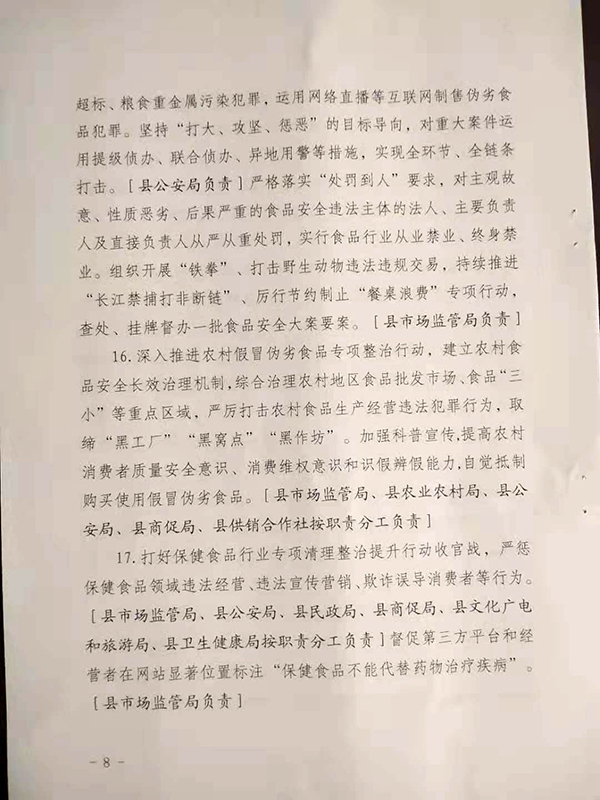 超标、粮食重金属污染犯罪，运用网络直播等互联网制售伪劣食
品犯罪。坚持“打大、攻坚、惩恶”的目标导向，对重大案件运
用提级侦办、联合侦办、异地用警等措施，实现全环节、全链条
打击。[县公安局负责]严格落实“处罚到人”要求，对主观故
意、性质恶劣、后果严重的食品安全违法主体的法人、主要负责
人及直接负责人从严从重处罚，实行食品行业从业禁业、终身禁
业。组织开展“铁拳”、打击野生动物违法违规交易，持续推进
“长江禁捕打非断链”、厉行节约制止“餐桌浪费”专项行动，
查处、挂牌督办一批食品安全大案要案。[县市场监管局负责]
16.深入推进农村假冒伪劣食品专项整治行动，建立农村食
品安全长效治理机制,综合治理农村地区食品批发市场、食品“三
小”等重点区域，严厉打击农村食品生产经营违法犯罪行为，取
缔“黑工厂”“黑窝点”“黑作坊”。加强科普宣传,提高农村
消费者质量安全意识、消费维权意识和识假辨假能力,自觉抵制
购买使用假冒伪劣食品。[县市场监管局、县农业农村局、县公
安局、县商促局、县供销合作社按职责分工负责]
17.打好保健食品行业专项清理整治提升行动收官战，严惩
保健食品领域违法经营、违法宣传营销、欺诈误导消费者等行为。
[县市场监管局、县公安局、县民政局、县商促局、县文化广电
和旅游局、县卫生健康局按职责分工负责]督促第三方平台和经
营者在网站显著位置标注“保健食品不能代替药物治疗疾病”。
[县市场监管局负责]
- 8 -